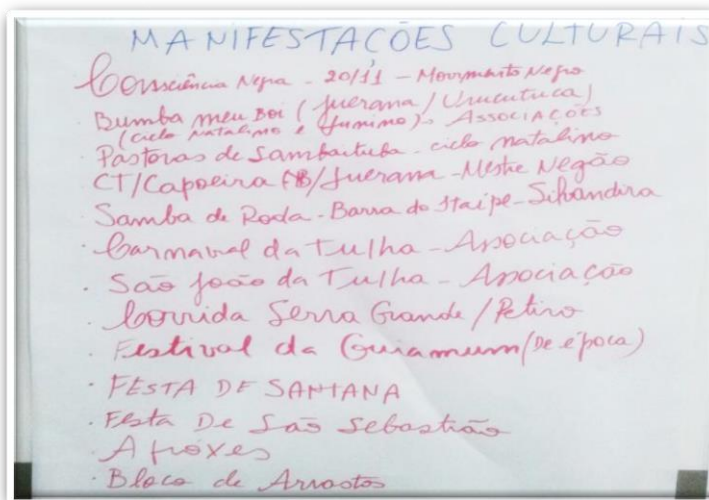 MANIFESTAÇÕES CULTURAIS
Consciência Negra - 20/11 - Movimento Negro
Bumba meu Boi (Juerana / Urucutuca)
(ciclo natalino e junino) - ASSOCIAÇÕES
Pastoras de Sambaituba - ciclo natalino
CT/Capoeira /Juerana - Mestre Negão
Samba de Roda - Barra do Itaipe - Silvandira
· Carnaval da Tulha - Associação
· São João da Tulha - Associação
· Corrida Serra Grande /
· Festival da Guiamum (De época)
· FESTA DE SANTANA
· Festa De São Sebastião
· Afoxés
· Bloco de Arrastos